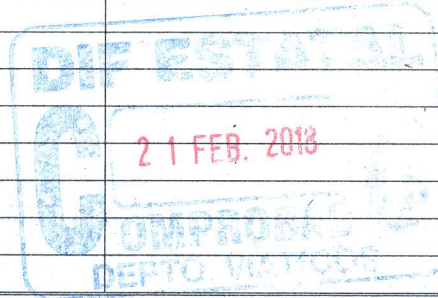 DIF ESTATAL
21 FEB. 2018
COMPROBADO
DEPTO. VIATICOS